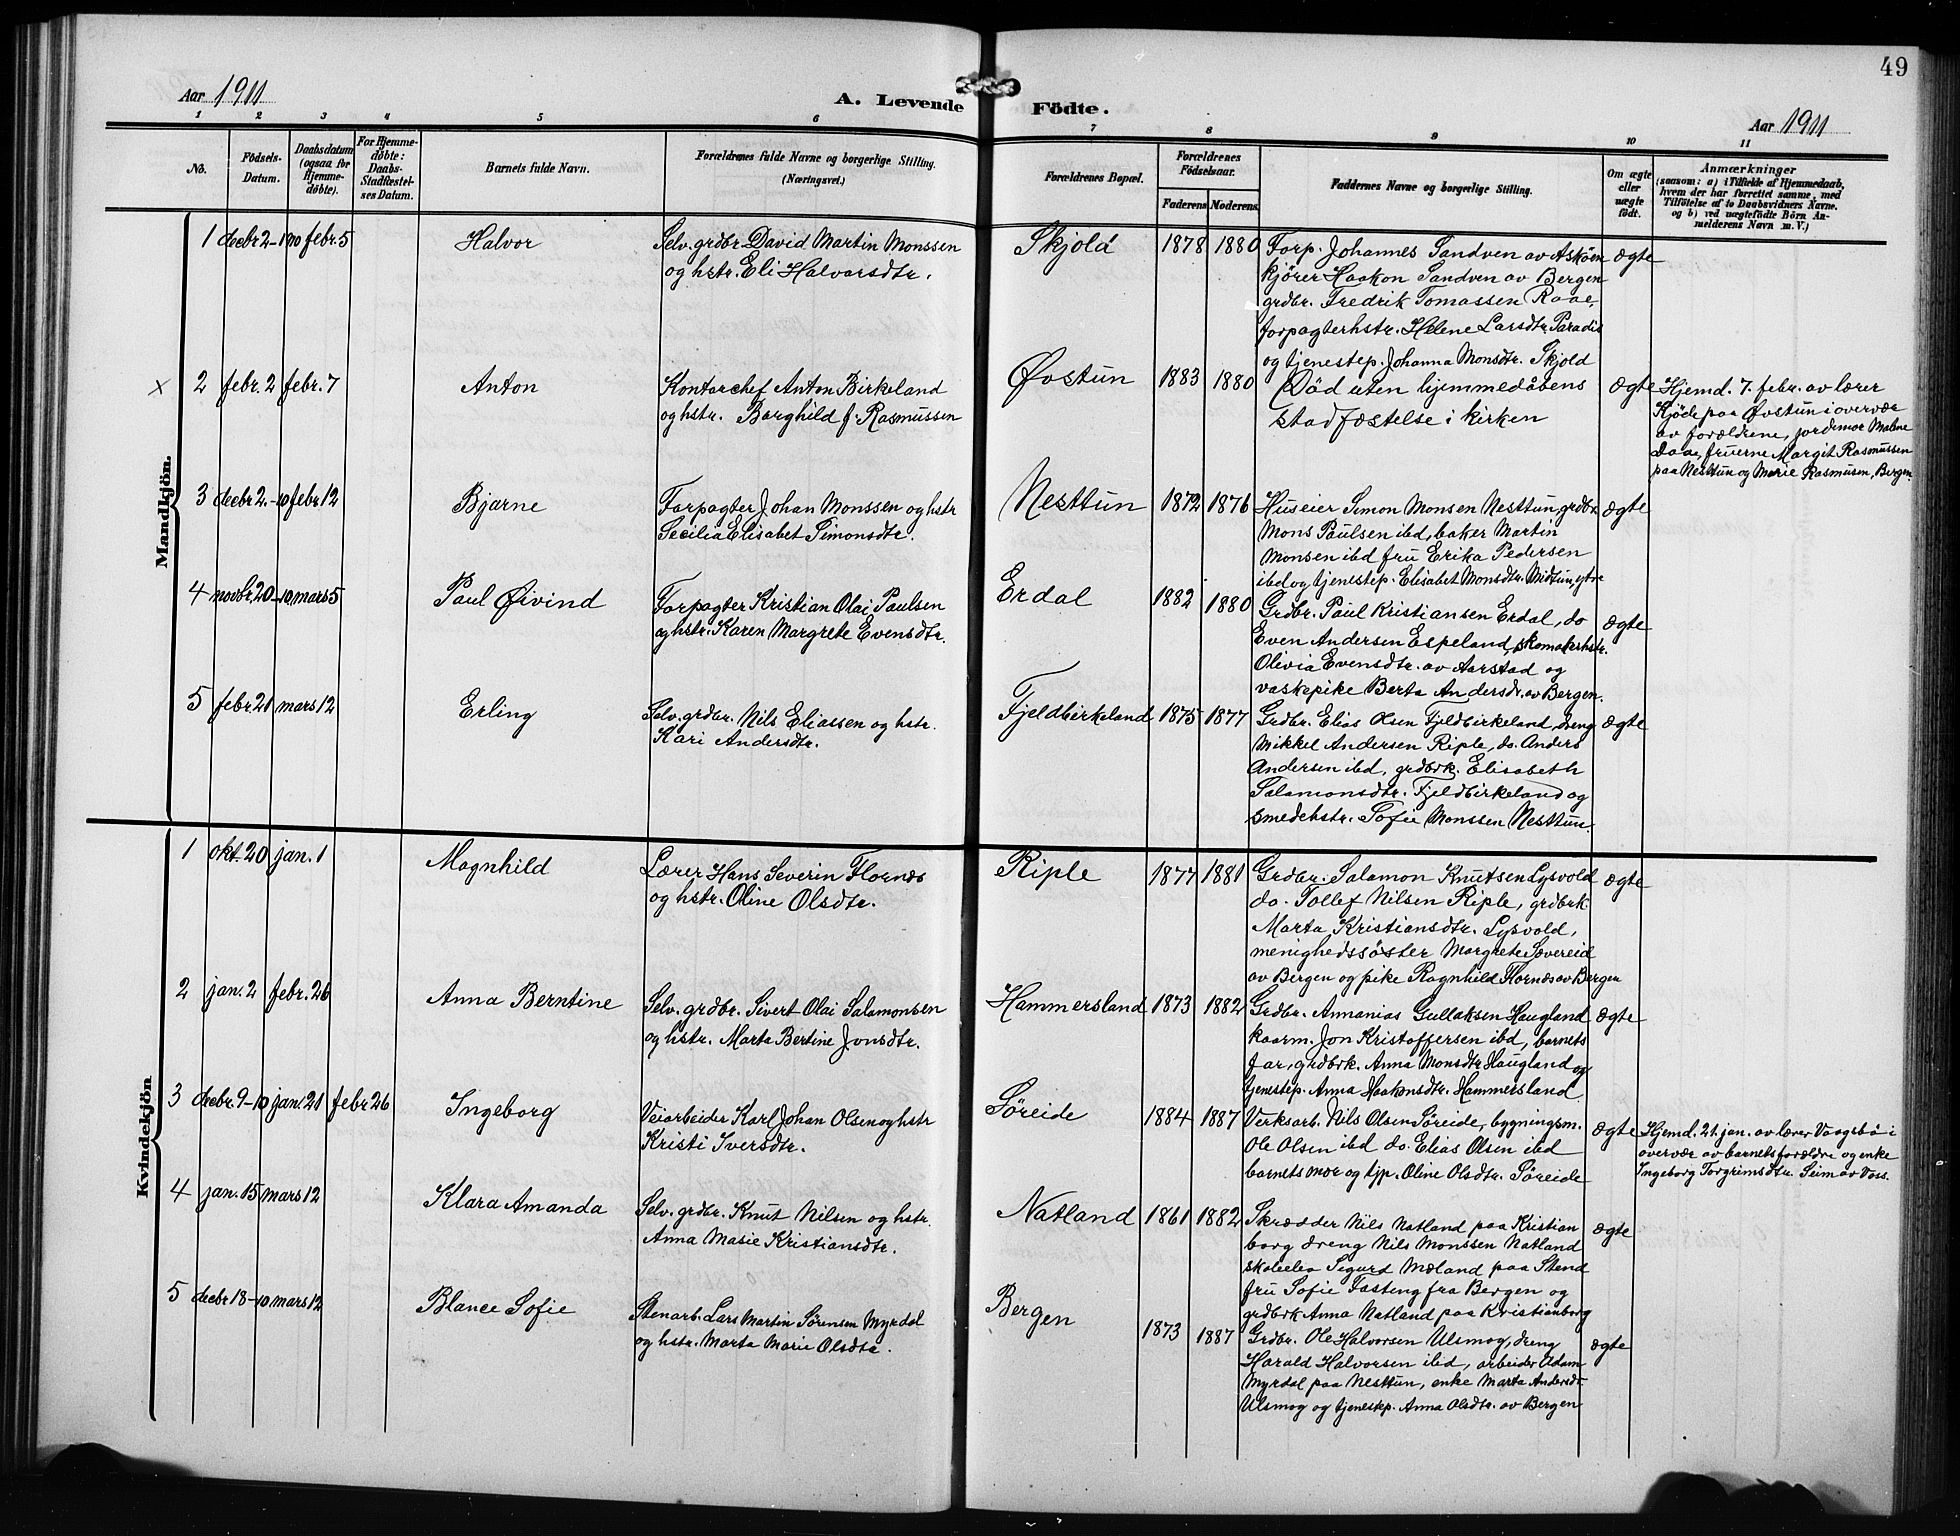 49
Aar 1911
A. Levende Födte.
Aar 1911
1 2 3 4 5 6 7 8 9 10 11
No.
Födsels-
Datum.
Daabsdatum
(ogsaa for
Hjemme-
döbte).
For Hjemme-
døbte:
Daabs-
Stadfæstel-
ses Datum.
Barnets fulde Navn.
Forældrenes fulde Navne og borgerlige Stilling.
(Næringsvei.)
Forældrenes Bopæl.
Forældrenes
Födselsaar.
Faderens Moderens
Faddernes Navne og borgerlige Stilling.
Om ægte
eller
uægte
født.
Anmærkninger
(saasom: a) i Tilfælde af Hjemmedaab,
hvem der har forrettet samme, med
Tilföielse af to Daabsvidners Navne.
og b) ved uægtefödte Börn An-
melderens Navn m. V.)
Mandkjön.
1 decbr 2-1910 febr. 5 Halvor
Selv. grdbr. David Martin Monssen
og hstr. Eli Halvorsdtr.
Skjold 1878 1880
Forp. Johannes Sandven av Askøen
kjører Haakon Sandven av Bergen
grdbr. Fredrik Tomassen Raae,
forpagterhstr. Helene Larsdtr. Paradis
og tjenestep. Johanna Monsdtr. Skjold
ægte
x 2 febr. 2 febr. 7 Anton
Kontorchef Anton Birkeland
og hstr. Borghild f. Rasmussen
Øvstun 1883 1880
Død uten hjemmedåbens
stadfæstelse i kirken
ægte
Hjemd. 7. febr. av lærer
Kjöde paa Øvstun i overvær
av forældrene, jordemor Malene
Daae, fruerne Margit Rasmussen
paa Nesttun og Marie Rasmusen, Bergen
3 decbr 2.-10 febr 12 Bjarne
Forpagter Johan Monssen og hstr
Secilia Elisabet Simonsdtr.
Nesttun 1872 1876
Huseier Simon Monsen Nesttun, grdbr.
Mons Paulsen ibd, baker Martin
Monsen ibd fru Erika Pedersen
ibd og tjenestep. Elisabet Monsdtr. Midtun, ytre
ægte
4 novbr. 20-10 mars 5 Paul Øivind
Forpagter Kristian Olai Paulsen
og hstr. Karen Margrete Evensdtr.
Erdal 1882 1880
Grdbr. Paul Kristiansen Erdal, do
Even Andersen Espeland, skomakerhstr.
Olivia Evensdtr. av Aarstad og
vaskepike Berta Andersdt. av Bergen.
ægte
5 febr. 21 mars 12 Erling
Selv. grdbr. Nils Eliassen og hstr.
Kari Andersdtr.
Fjeldbirkeland 1875 1877
Grdbr. Elias Olsen Fjeldbirkeland, dreng
Mikkel Andersen Riple, do. Anders
Andersen ibd, grdbrk. Elisabeth
Salamonsdtr. Fjeldbirkeland og
smedehstr. Sofie Monssen Nesttun.
ægte
Kvindekjön
1 okt. 20 jan. 1 Magnhild
Lærer Hans Severin Flornæs
og hstr. Oline Olsdtr.
Riple 1877 1881
Grdbr. Salamon Knutsen Lysvold
do. Tollef Nilsen Riple, grdbrk
Marta Kristiansdtr. Lysvold,
menighedssöster Margrete Sævereid
av Bergen og pike Ragnhild Flornæs av Bergen
ægte
2 jan. 2 febr. 26 Anna Berntine
Selv. grdbr. Sivert Olai Salamonsen
og hstr. Marta Bertine Jonsdtr.
Hammersland 1873 1882
Grdbr. Annanias Gullaksen Haugland
kaarm. Jon Kristoffersen ibd, barnets
far, grdbrk. Anna Monsdtr Haugland og
tjenestep. Anna Haakonsdtr. Hammersland
ægte
3 decbr. 9-10 jan. 21 febr 26 Ingeborg
Veiarbeider Karl Johan Olsen og hstr
Kristi Iversdtr.
Søreide 1884 1887
Verksarb. Nils Olsen Søreide, bygningsm.
Ole Olsen ibd do. Elias Olsen ibd
barnets mor og tjp. Oline Olsdtr. Søreide
ægte
Hjemd. 21. jan. av lærer Vaagsbö i
overvær av barnets forældre og enke
Ingeborg Torgrimsdtr. Seim av Voss.
4 jan. 15 mars 12 Klara Amanda
Selv. grdbr. Knut Nilsen og hstr.
Anna Marie Kristiansdtr.
Natland 1861 1882
Skrædder Nils Natland paa Kristian
borg dreng Nils Monssen Natland
skoleelev Sigurd Mæland paa Stend
fru Sofie Fasteng fra Bergen og
grdbrk Anna Natland paa Kristianborg
ægte
5 decbr 18-10 mars 12 Blance Sofie
Stenarb. Lars Martin Sörensen Myrdal
og hstr. Marta Marie Olsdtr.
Bergen 1873 1887
Grdbr. Ole Halvorsen Ulsmog, dreng
Harald Halvorsen ibd, arbeider Adam
Myrdal paa Nesttun, enke Marta Andersdt.
Ulsmog og tjenestep. Anna Olsdtr. av Bergen
ægte